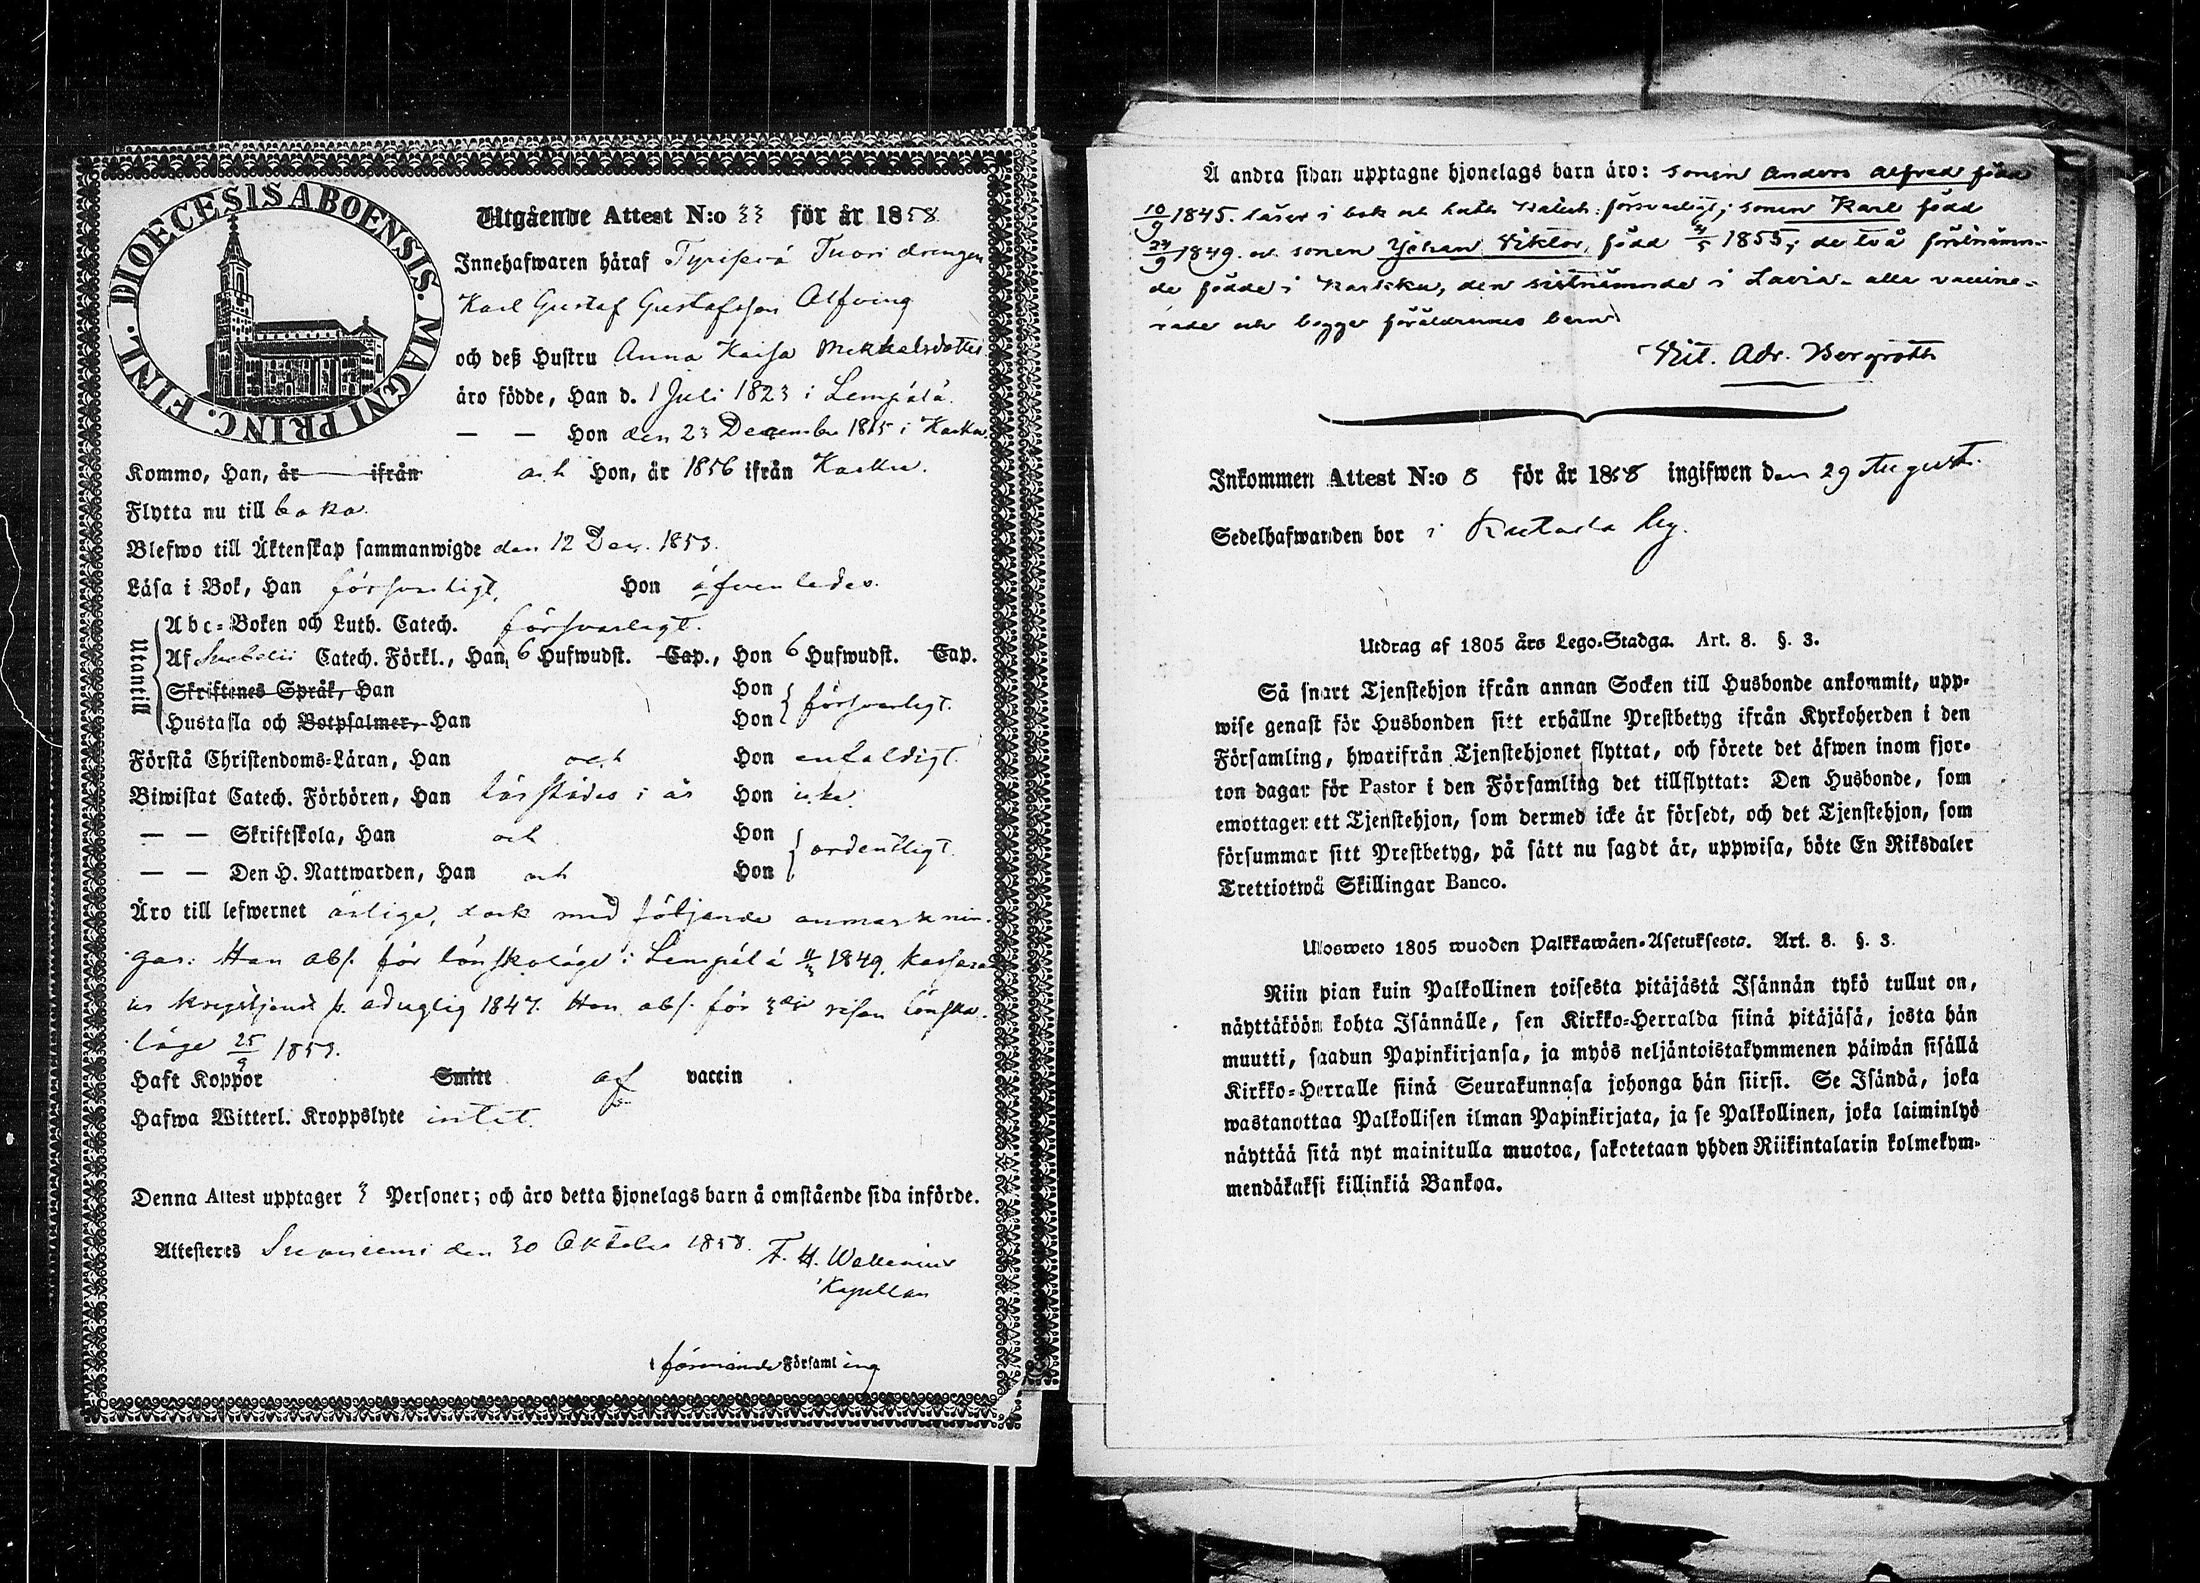 DIOECESIS ABOENSIS. MAGNI PRINC. FINL.
Utgående Attest N:o 33 för år 1858
Innehafwaren häraf Tyrisevä Tuori drengen
Karl Gustaf Gustafsson Alfving
och deß Hustru Anna Kaisa Mikkelsdotter
äro födde, Han d. 1 Juli 1823 i Lempälä.
— — Hon den 23 December 1815 i Karku
Kommo, Han, år ifrån och Hon, år 1856 ifrån Karku.
Flytta nu till baka.
Blefwo till Äktenskap sammanwigde den 12 Dec. 1853.
Läsa i Bok, Han försvarligt, Hon äfvenledes.
Utantill
Abc-Boken och Luth. Catech. försvarligt.
Af Svebelii Catech. Förkl., Han 6 Hufwudst. Cap., Hon 6 Hufwudst. Cap.
Skriftenes Språk, Han Hon
Hustafla och Botpsalmer, Han Hon försvarligt.
Förstå Christendoms-Läran, Han och Hon enfaldigt.
Biwistat Catech. Förhören, Han härstädes i år Hon icke.
— — Skriftskola, Han och Hon
— — Den H. Nattwarden, Han och Hon ordentligt.
Äro till lefwernet ärlige, dock med följande anmärknin-
gar: Han abs. för lönskoläge i Lempälä 1849, kasserad
ur krigstjenst s. oduglig 1847. Hon abs. för 3dje resan lönska-
läge 25/9 1853.
Haft Koppor Smitt af vaccin
Hafwa Witterl. Kroppslyte intet.
Denna Attest upptager 3 Personer; och äro detta hjonelags barn å omstående sida införde.
Attesteres Suoniemi den 30 Oktober 1858. F. H. Wallenius
Kapellan
i förenämnde Församling
Å andra sidan upptagne hjonelags barn äro: sonen Anders Alfred född
10/9 1845. läser i bok och Luth. Katech. försvarligt; sonen Karl född
24/9 1849. och sonen Johan Viktor, född 1855; de två förstnämn-
de födde i Karkku, den sistnämnde i Lavia - alla vaccine-
rade och begge föräldrarnes barn.
Vit. Adr. Bergroth
Inkommen Attest N:o 8 för år 1858 ingifwen den 29 August.
Sedelhafwanden bor i Kutala by.
Utdrag af 1805 års Lego-Stadga. Art. 8. §. 3.
Så snart Tjenstehjon ifrån annan Socken till Husbonde ankommit, upp-
wise genast för Husbonden sitt erhållne Prestbetyg ifrån Kyrkoherden i den
Församling, hwarifrån Tjenstehjonet flyttat, och förete det äfwen inom fjor-
ton dagar för Pastor i den Församling det tillflyttat: Den Husbonde, som
emottager ett Tjenstehjon, som dermed icke är försedt, och det Tjenstehjon, som
försummar sitt Prestbetyg, på sätt nu sagdt är, uppwisa, böte En Riksdaler
Trettiotwå Skillingar Banco.
Ulosweto 1805 wuoden Palkkawäen-Asetuksesta. Art. 8. §. 3.
Niin pian kuin Palkollinen toisesta pitäjästä Isännän tykö tullut on,
näyttäköön kohta Isännälle, sen Kirkko-Herralda siinä pitäjäsä, josta hän
muutti, saadun Papinkirjansa, ja myös neljäntoistakymmenen päiwän sisällä
Kirkko-Herralle siinä Seurakunnasa johonga hän siirsi. Se Isändä, joka
wastanottaa Palkollisen ilman Papinkirjata, ja se Palkollinen, joka laiminlyö
näyttää sitä nyt mainitulla muotoa, sakotetaan yhden Riikintalarin kolmekym-
mendäkaksi killinkiä Bankoa.